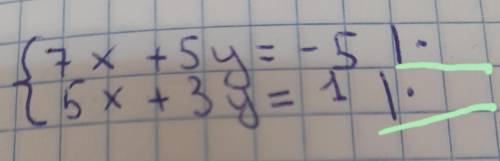 7x + 5y = -5 | ·
5x + 3y = 1 | ·